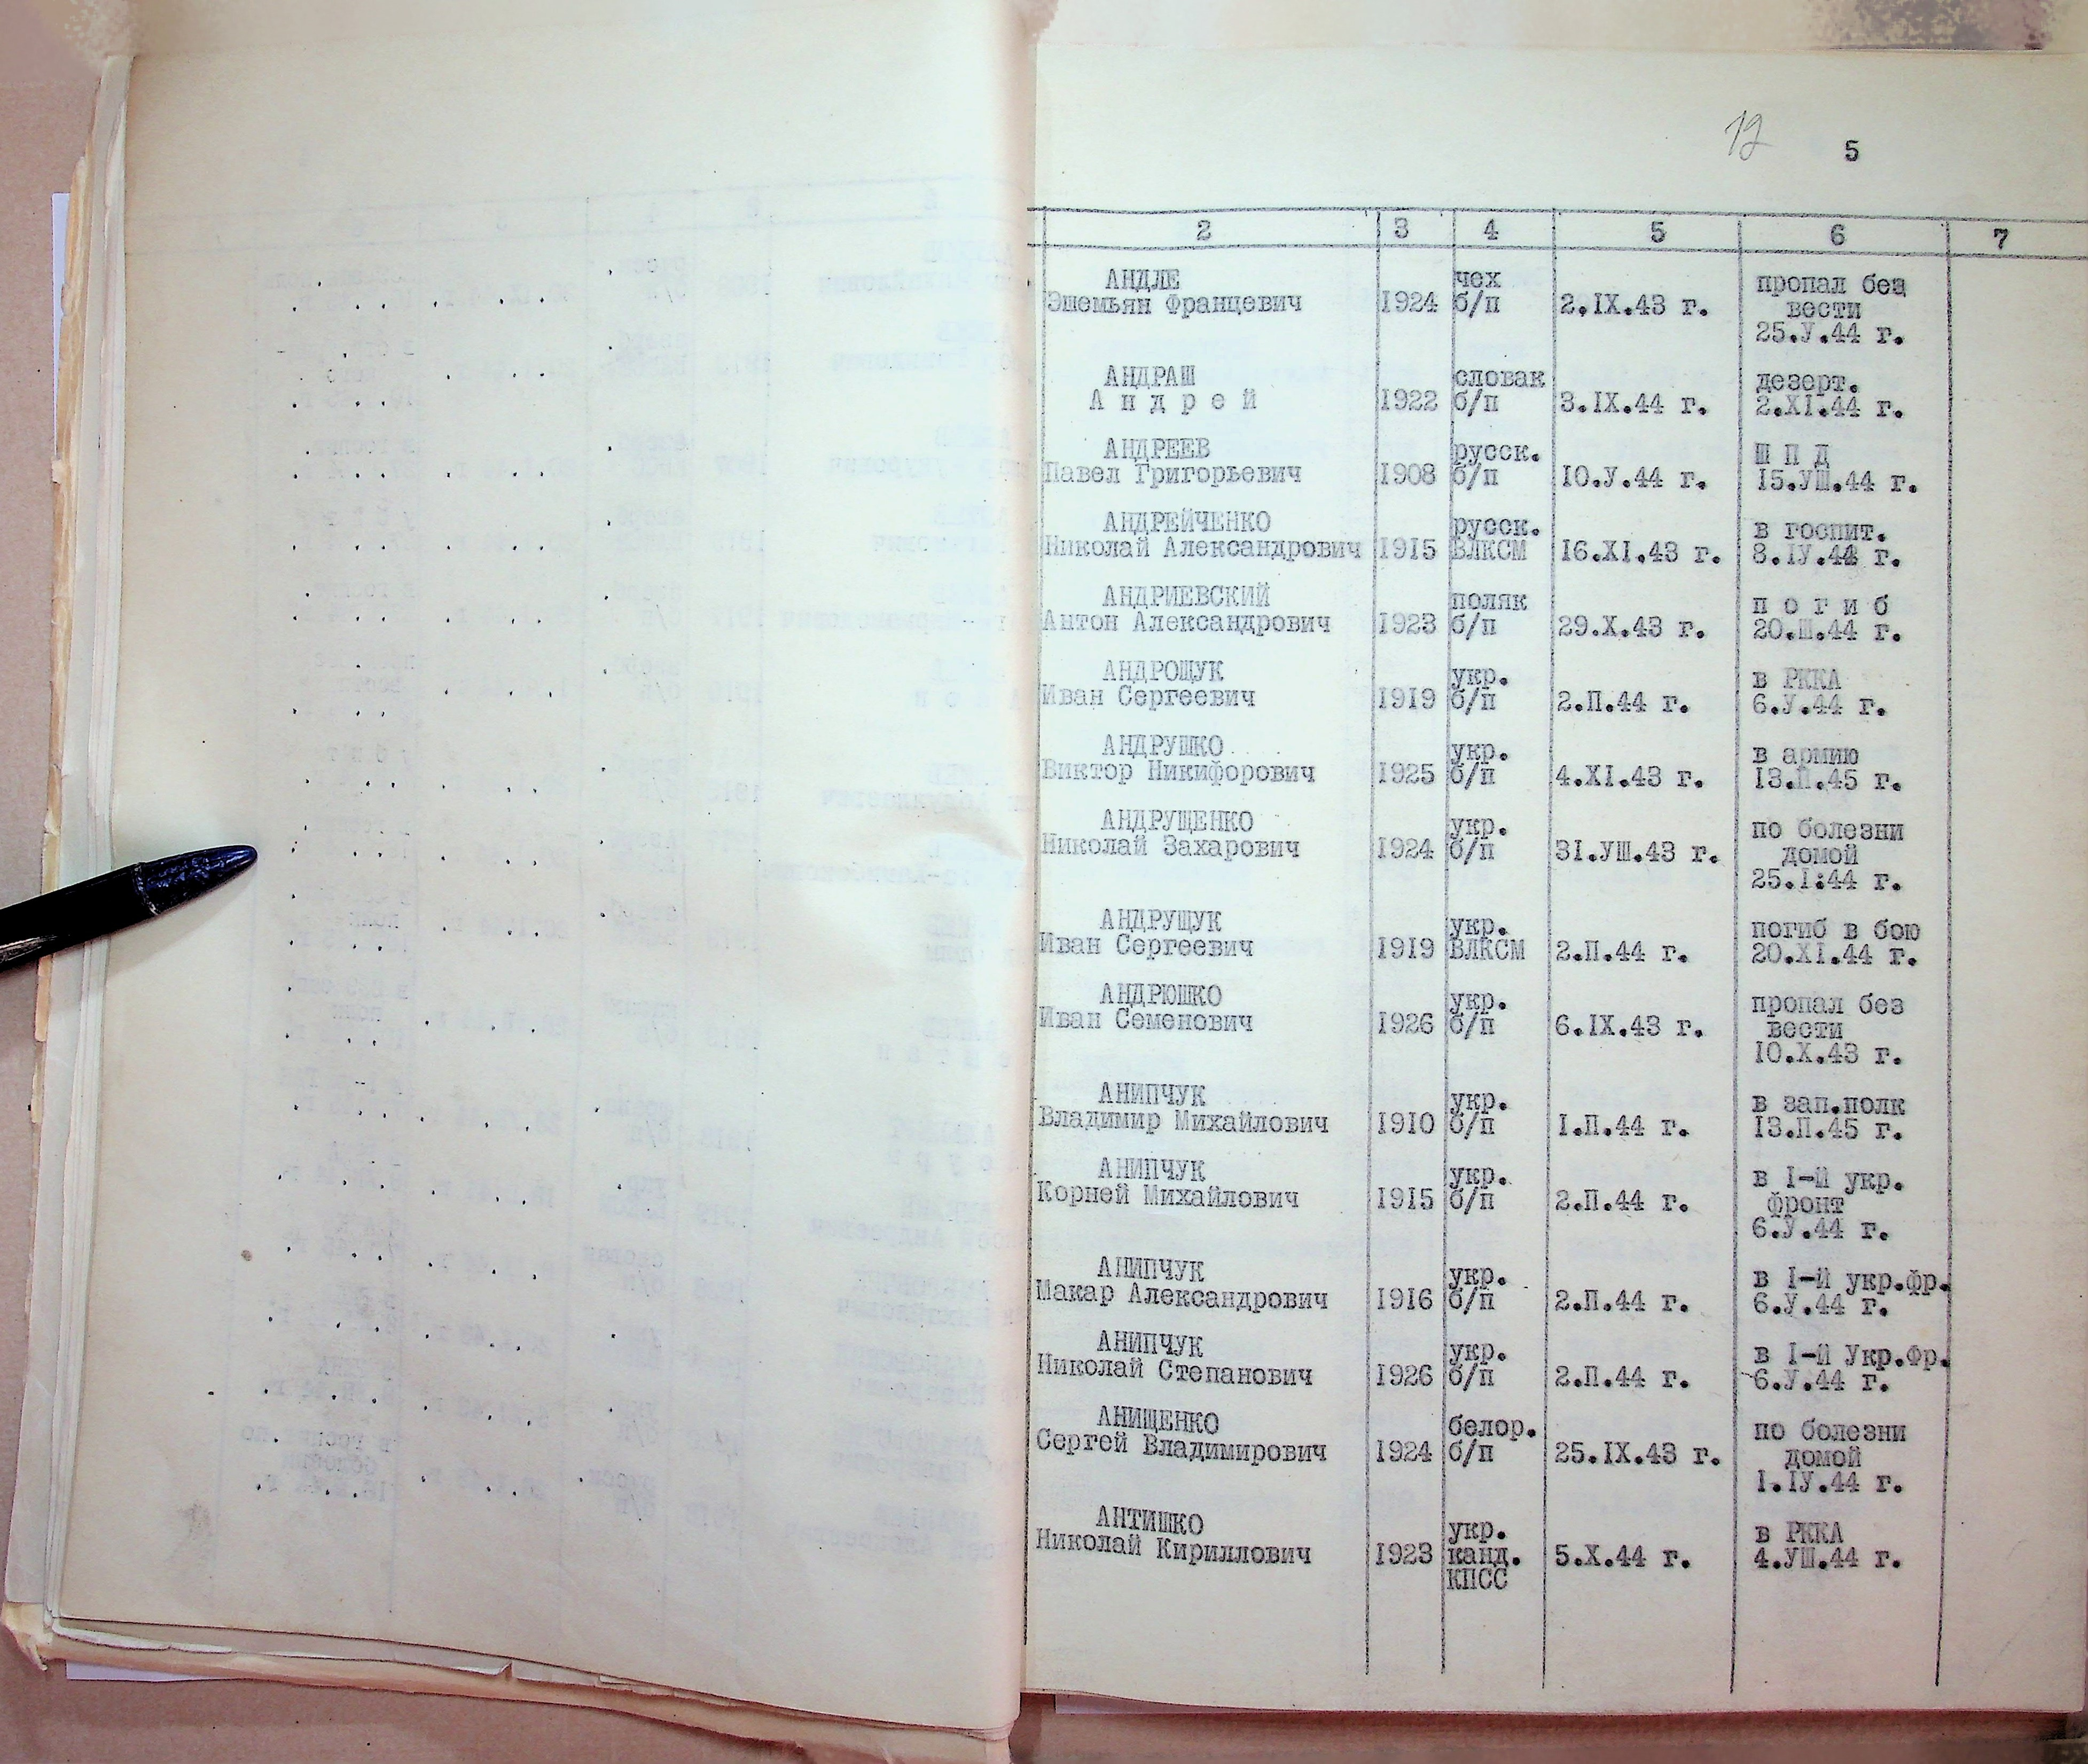 12 5
2 3 4 5 6 7
АНДЛЕ чех пропал без
Эшемьян Францевич 1924 б/п 2.IX.43 г. вести
25.У.44 г.
АНДРАШ словак дезерт.
А н д р е й 1922 б/п 3.IX.44 г. 2.XI.44 г.
АНДРЕЕВ русск. Ш П Д
Павел Григорьевич 1908 б/п 10.У.44 г. 15.УШ.44 г.
АНДРЕЙЧЕНКО русск. в госпит.
Николай Александрович 1915 ВЛКСМ 16.XI.43 г. 8.IУ.44 г.
АНДРИЕВСКИЙ поляк п о г и б
Антон Александрович 1923 б/п 29.X.43 г. 20.Ш.44 г.
АНДРОЩУК укр. в РККА
Иван Сергеевич 1919 б/п 2.П.44 г. 6.У.44 г.
АНДРУШКО укр. в армию
Виктор Никифорович 1925 б/п 4.XI.43 г. 13.П.45 г.
АНДРУЩЕНКО укр. по болезни
Николай Захарович 1924 б/п 31.УШ.43 г. домой
25.I.44 г.
АНДРУЩУК укр. погиб в бою
Иван Сергеевич 1919 ВЛКСМ 2.П.44 г. 20.XI.44 г.
АНДРЮШКО укр. пропал без
Иван Семенович 1926 б/п 6.IX.43 г. вести
10.X.43 г.
АНИПЧУК укр. в зап.полк
Владимир Михайлович 1910 б/п 1.П.44 г. 13.П.45 г.
АНИПЧУК укр. в I-й укр.
Корней Михайлович 1915 б/п 2.П.44 г. фронт
6.У.44 г.
АНИПЧУК укр. в I-й укр.фр.
Макар Александрович 1916 б/п 2.П.44 г. 6.У.44 г.
АНИПЧУК укр. в I-й Укр.Фр.
Николай Степанович 1926 б/п 2.П.44 г. 6.У.44 г.
АНИЩЕНКО белор. по болезни
Сергей Владимирович 1924 б/п 25.IX.43 г. домой
1.IУ.44 г.
АНТИШКО укр. в РККА
Николай Кириллович 1923 канд. 5.X.44 г. 4.УШ.44 г.
КПСС